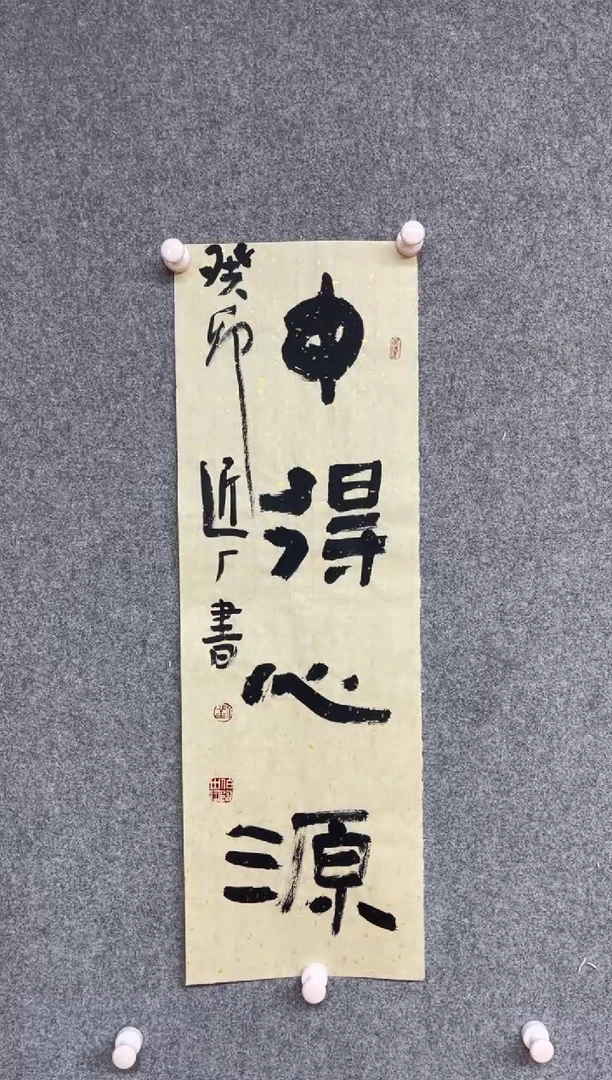 中得心源
癸卯近厂書